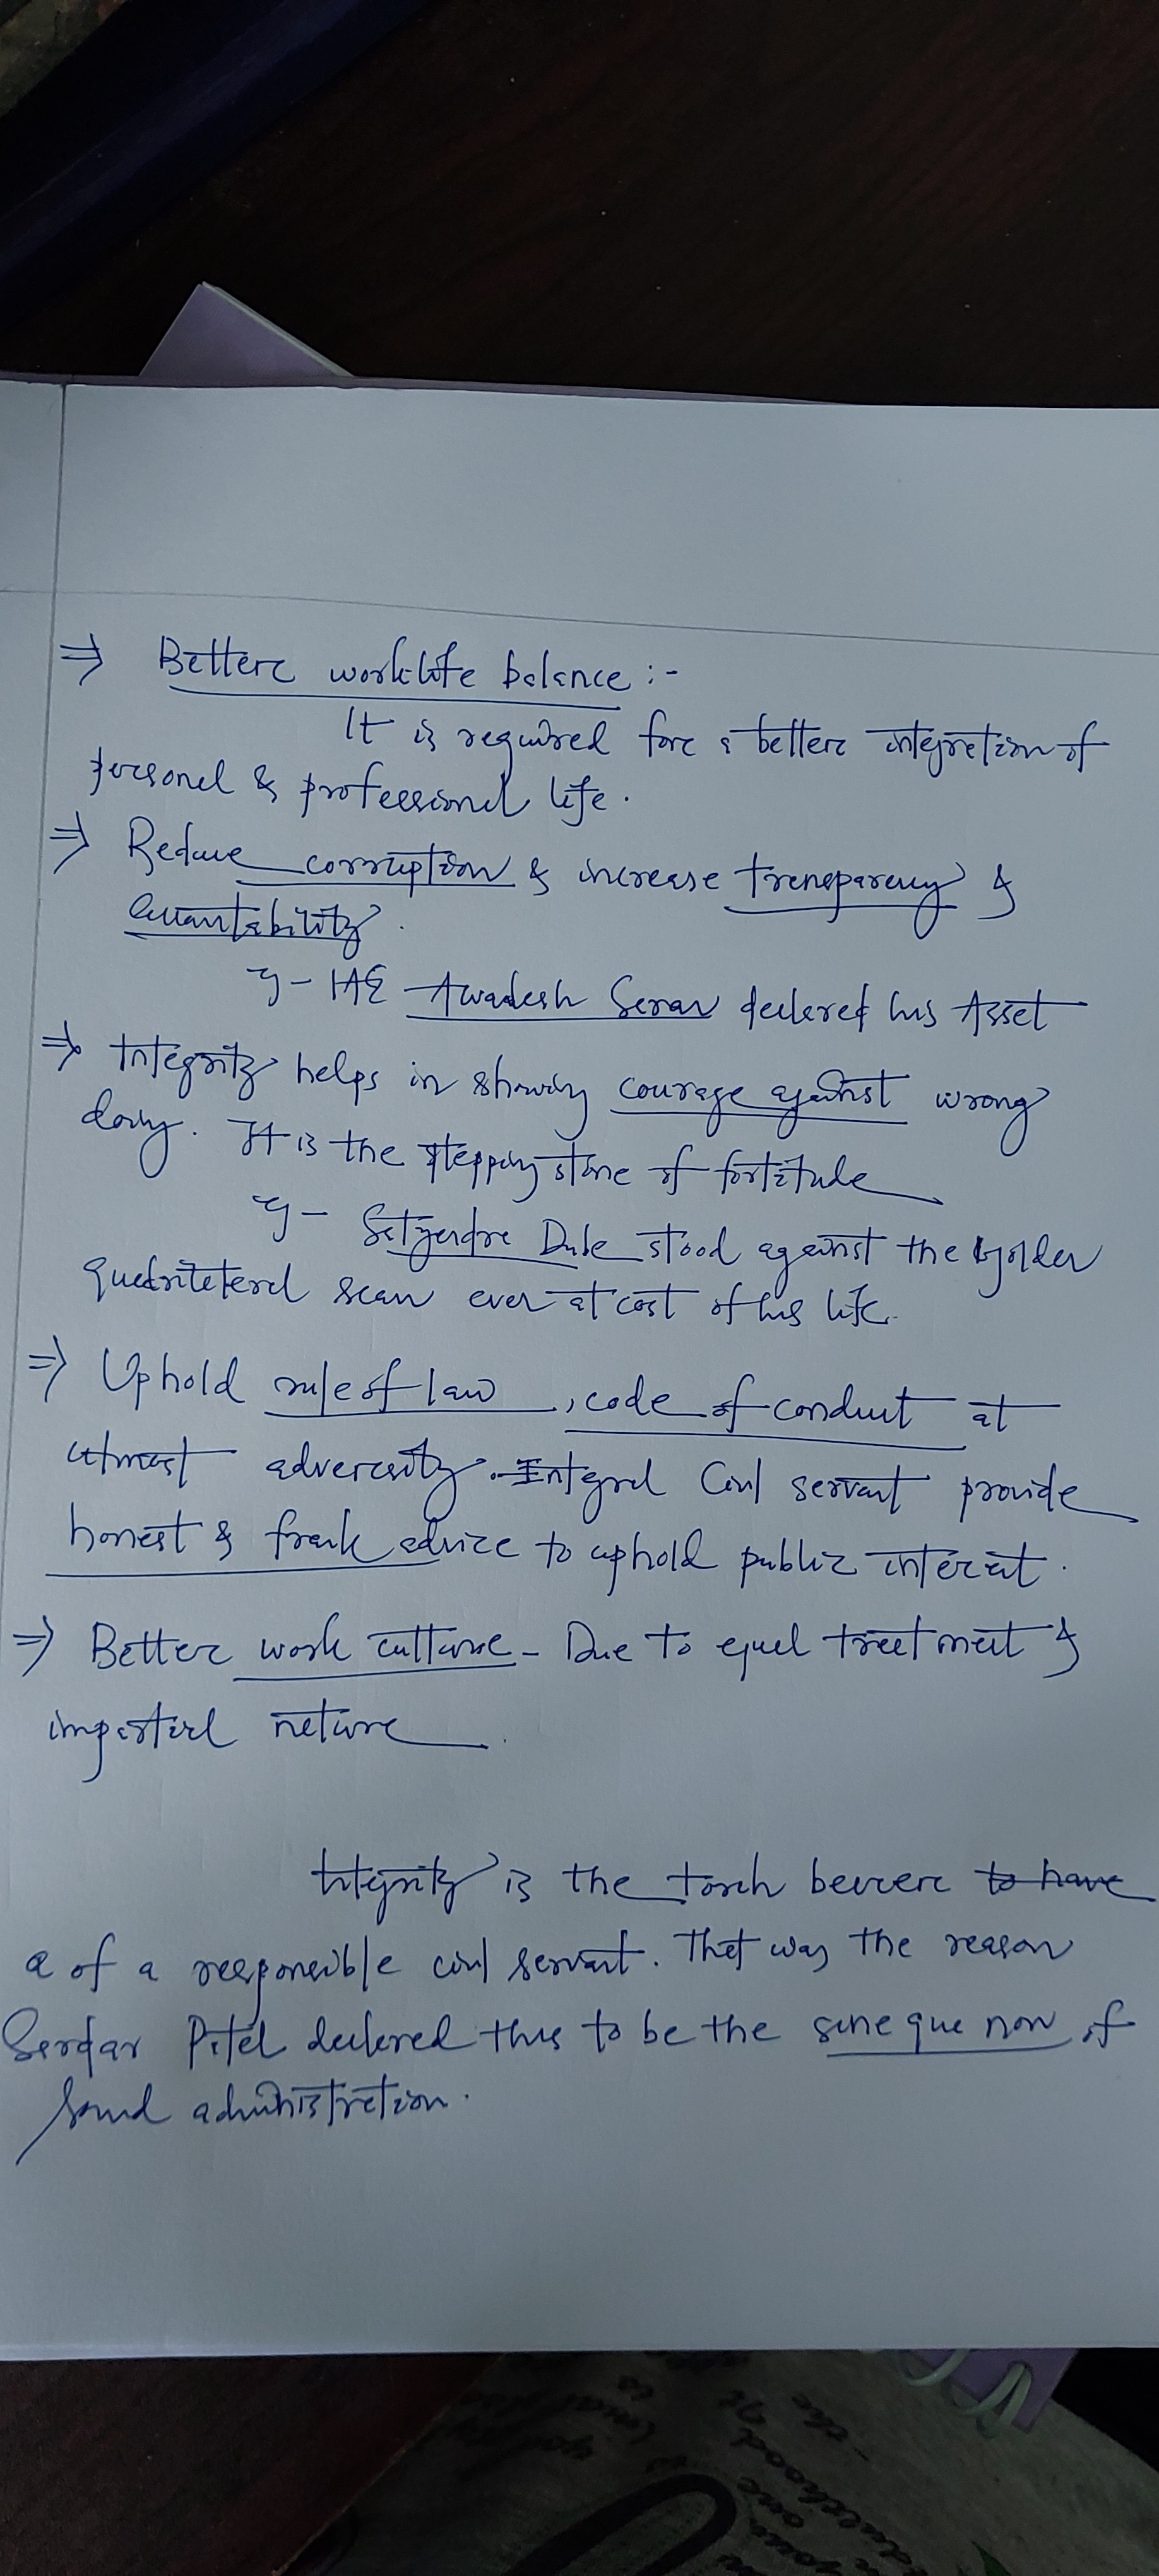 ⇒ Better worklife balance :-
It is required for a better integration of
personal & professional life.
⇒ Reduce corruption & increase transparency &
accountability.
eg - IAS Awadesh Saran declared his Asset
⇒ Integrity helps in showing courage against wrong
doing. It is the stepping stone of fortitude
eg - Satyendra Dube stood against the golden
quadrilateral scam even at cost of his life.
⇒ Uphold rule of law, code of conduct at
utmost adversity. Integral Civil servant provide
honest & frank advice to uphold public interest.
⇒ Better work culture - Due to equal treatment &
impartial nature.
Integrity is the torch bearer to have
a of a responsible civil servant. That was the reason
Sardar Patel declared this to be the sine qua non of
sound administration.